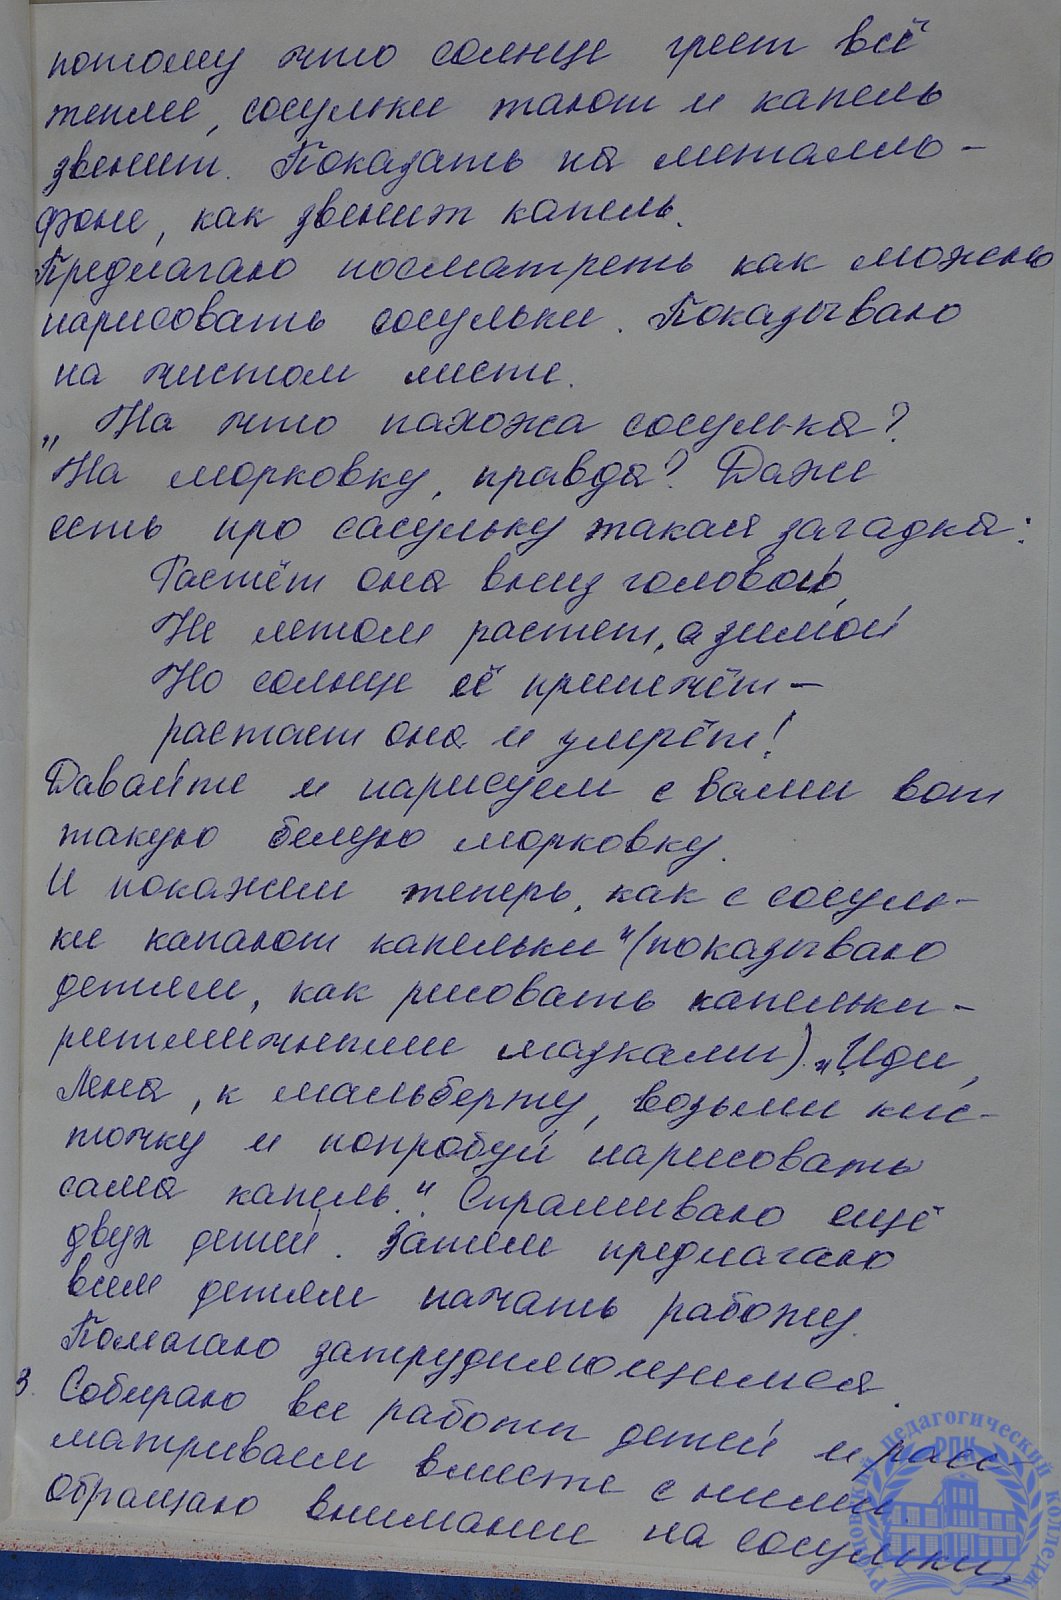 потому что солнце греет всё
теплее, сосульки тают и капель
звенит. Показать на металло-
фоне, как звенит капель.
Предлагаю посматреть как можно
нарисовать сосульки. Показываю
на чистом листе.
„ На что пахожа сосулька?
На морковку, правда? Даже
есть про сасульку такая загадка:
Растёт она вниз головою,
Не летом растет, а зимой
Но солнце её припечёт –
растает она и умрёт!
Давайте и нарисуем с вами вот
такую белую морковку.
И покажем теперь, как с сосуль-
ки капают капельки“ (показываю
детям, как рисовать капельки –
ритмичными мазками). „Иди,
Лена, к мальберту, возьми кис-
точку и попробуй нарисовать
сама капель.“ Спрашиваю ещё
двух детей. Затем предлагаю
всем детям начать работу.
Помагаю затрудняющимся.
3. Собираю все работы детей и расс-
матриваем вместе с ними.
Обращаю внимание на сосульки,
педагогический
РПК
колледж